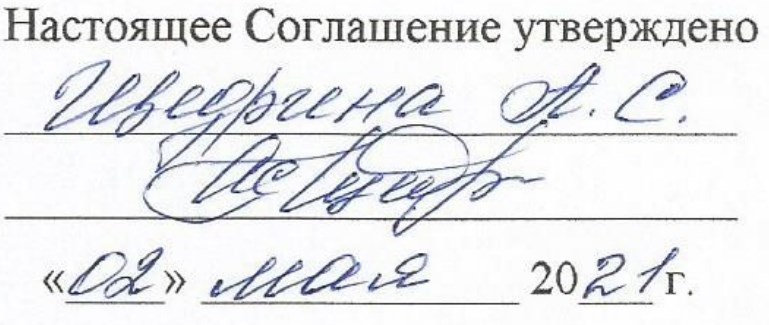 Настоящее Соглашение утверждено
Щедрина А. С.
«02» мая 2021 г.